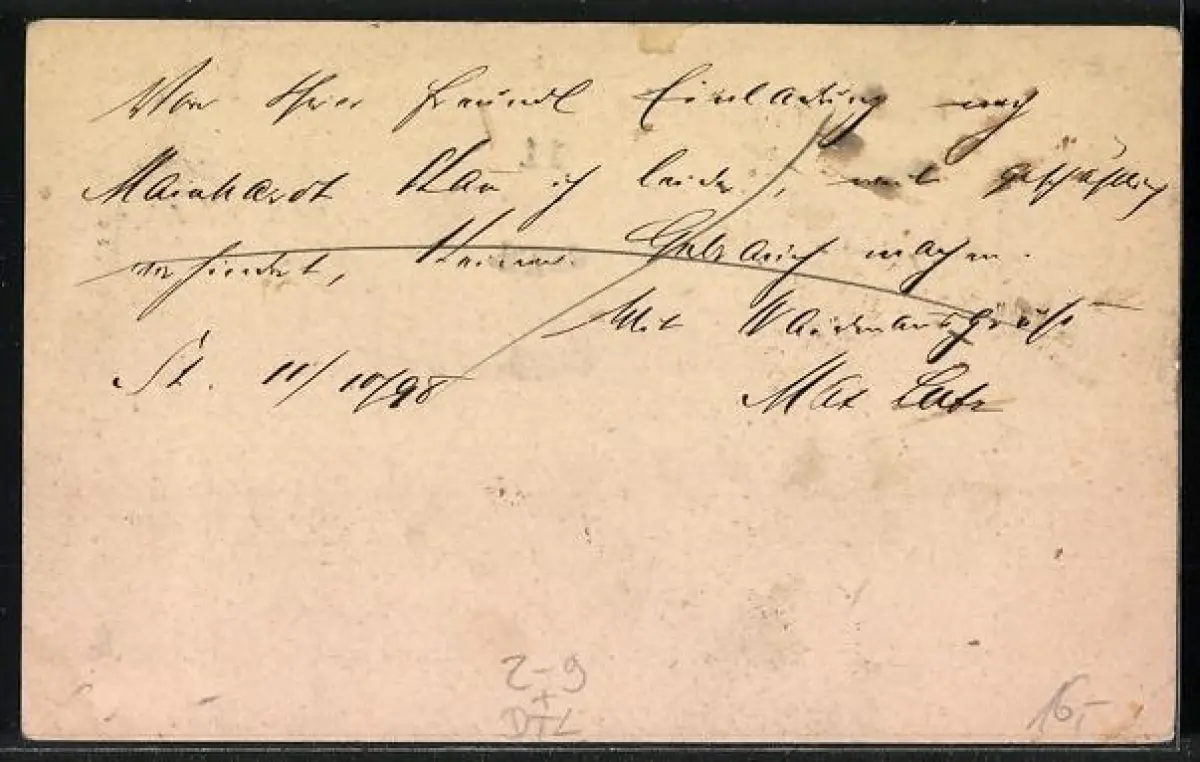 Von Ihrer freundl Einladung nach
Mainhardt kann ich leider, weil geschäftlich
verhindert, keinen Gebrauch machen.
Mit Waidmannsgruß
St. 11/10/98 Max Lutz
2-9
+
DTL
16,-